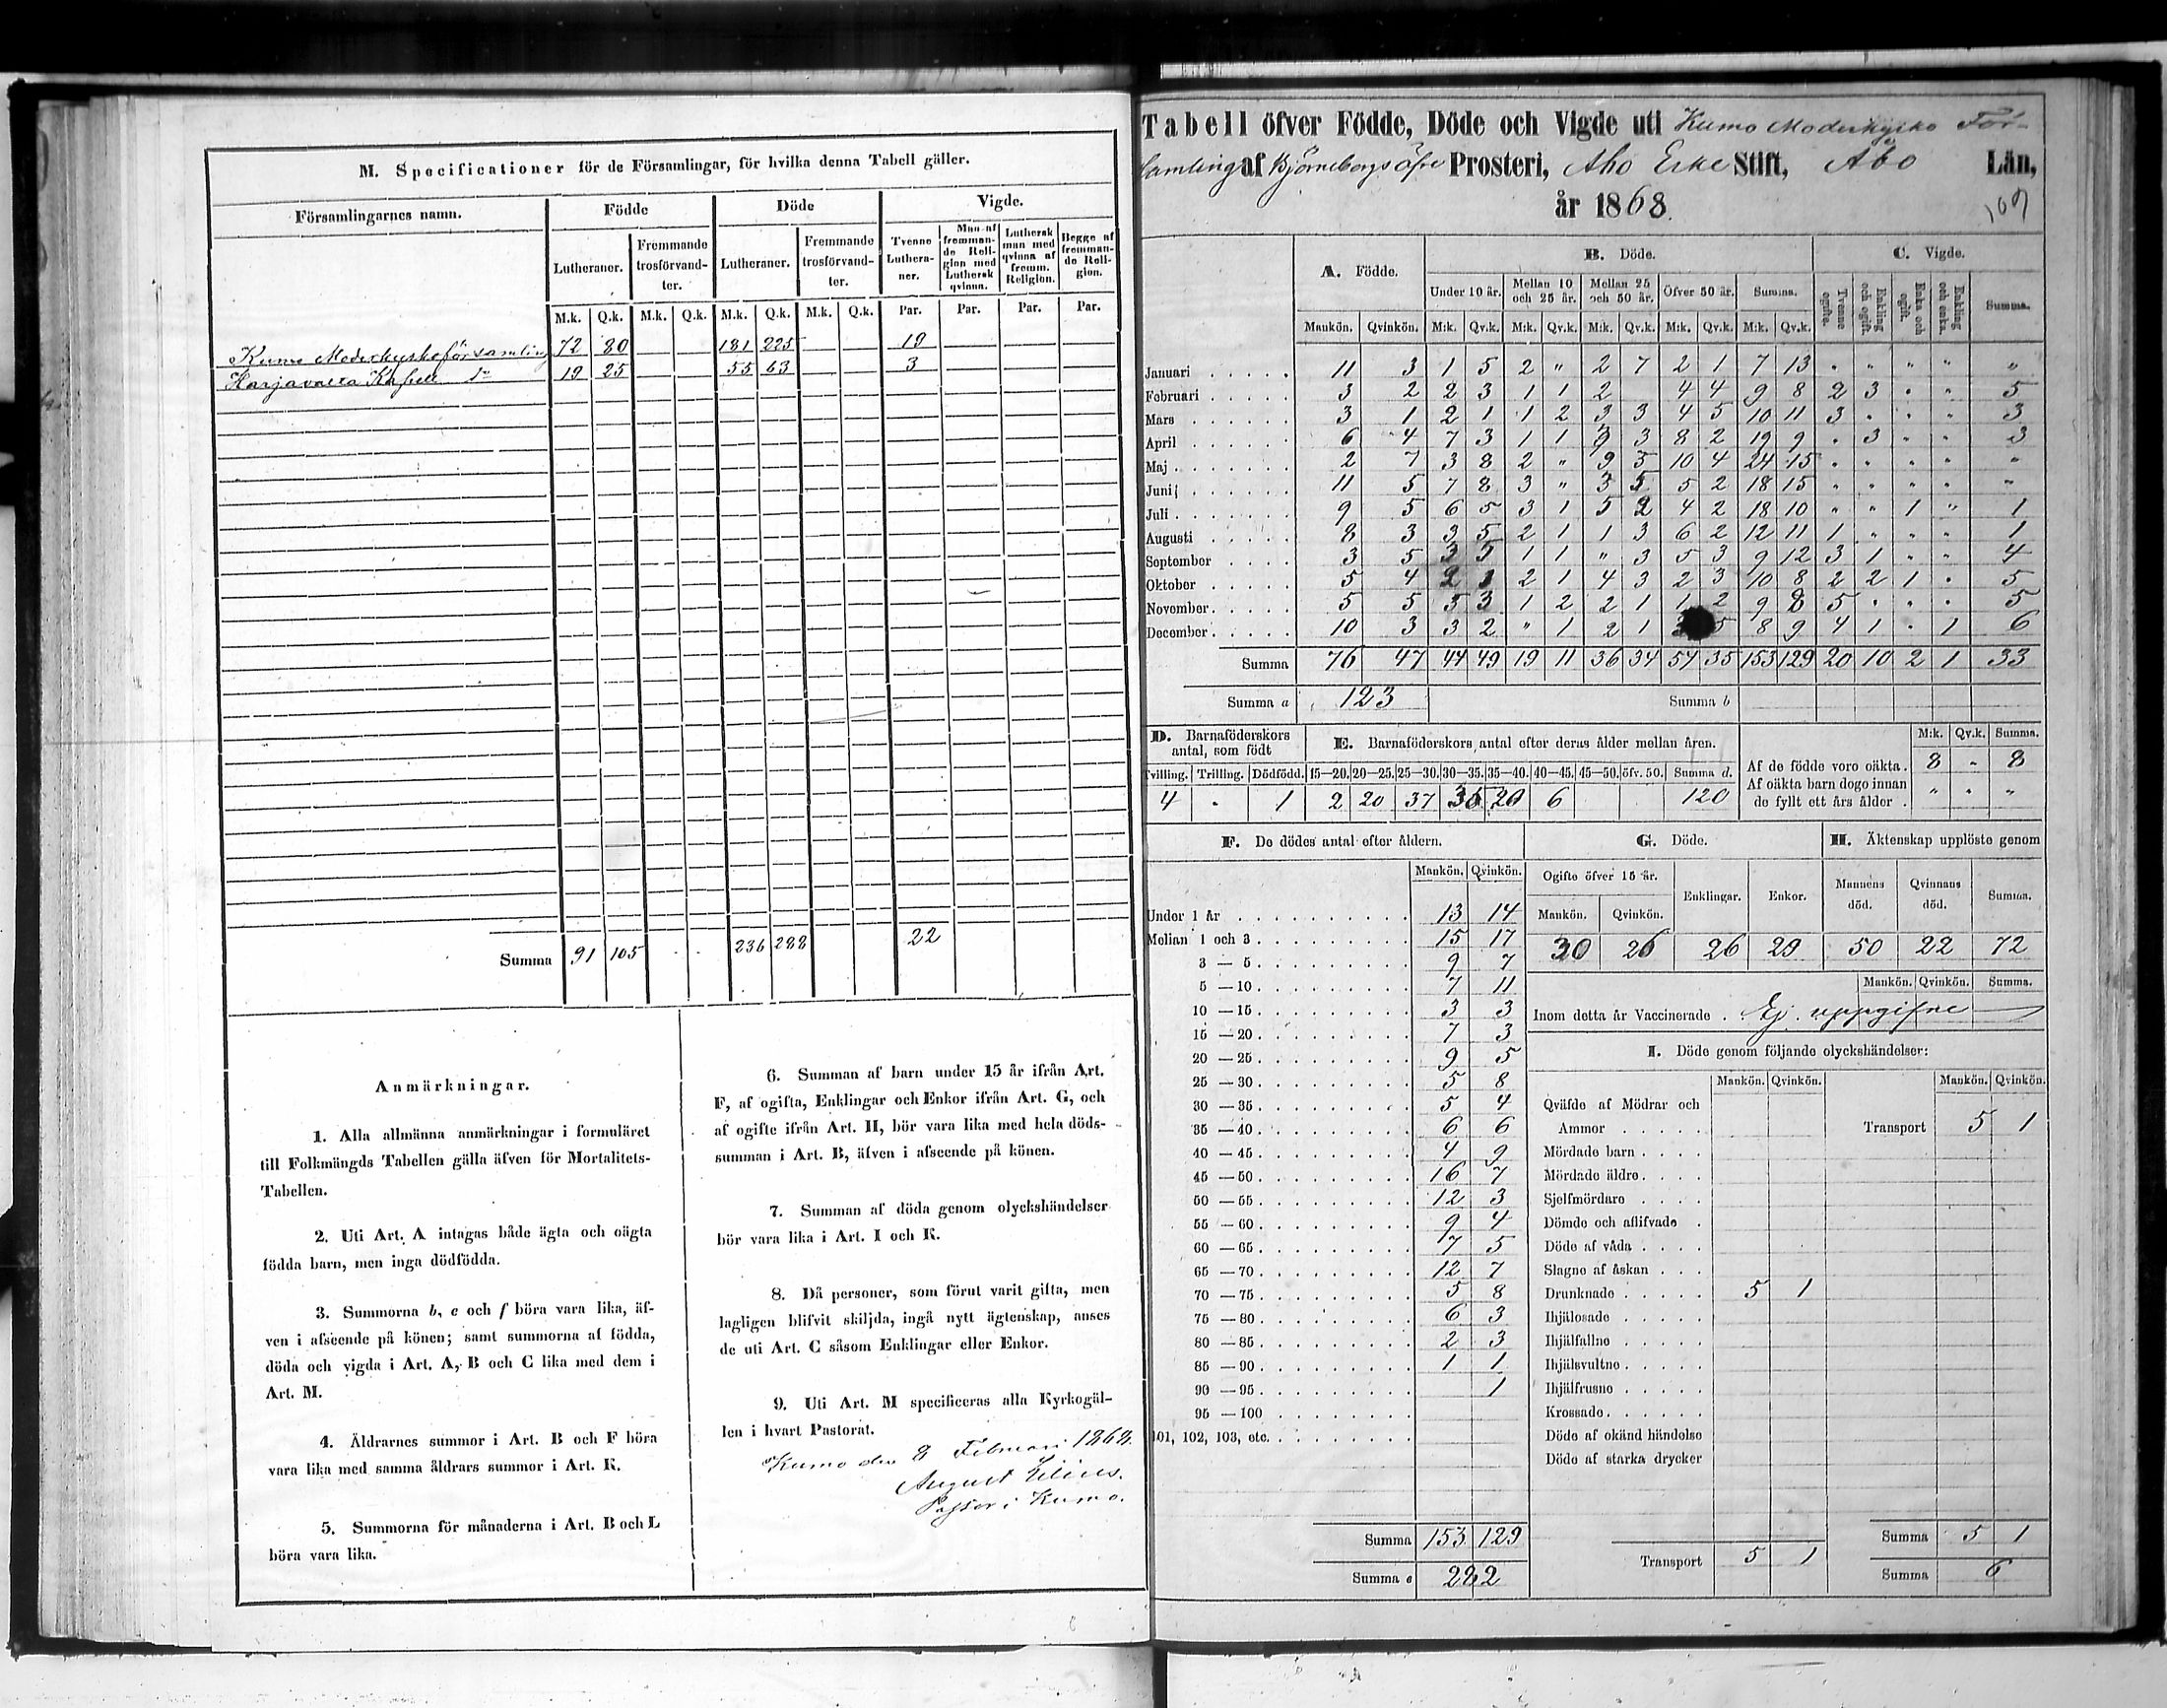 M. Specificationer för de Församlingar, för hvilka denna Tabell gäller.
Församlingarnes namn. Födde Döde Vigde.
Lutheraner. Fremmande trosförvandter. Lutheraner. Fremmande trosförvandter. Tvenne Lutheraner. Man af fremmande Religion med Luthersk qvinna. Luthersk man med qvinna af fremm. Religion. Begge af fremmande Religion.
M.k. Q.k. M.k. Q.k. M.k. Q.k. M.k. Q.k. Par. Par. Par. Par.
Kumo Moderkyrkoförsamling 72 80 181 225 19
Harjavalta Kapell 19 25 55 63 3
Summa 91 105 236 288 22
Anmärkningar.
1. Alla allmänna anmärkningar i formuläret
till Folkmängds Tabellen gälla äfven för Mortalitets-
Tabellen.
2. Uti Art. A intagas både ägta och oägta
födda barn, men inga dödfödda.
3. Summorna b, e och f böra vara lika, äf-
ven i afseende på könen; samt summorna af födda,
döda och vigda i Art. A, B och C lika med dem i
Art. M.
4. Äldrarnes summor i Art. B och F böra
vara lika med samma åldrars summor i Art. K.
5. Summorna för månaderna i Art. B och L
böra vara lika.
6. Summan af barn under 15 år ifrån Art.
F, af ogifta, Enklingar och Enkor ifrån Art. G, och
af ogifte ifrån Art. H, bör vara lika med hela döds-
summan i Art. B, äfven i afseende på könen.
7. Summan af döda genom olyckshändelser
bör vara lika i Art. I och K.
8. Då personer, som förut varit gifta, men
lagligen blifvit skiljda, ingå nytt ägtenskap, anses
de uti Art. C såsom Enklingar eller Enkor.
9. Uti Art. M specificeras alla Kyrkogäl-
len i hvart Pastorat.
Kumo den 8 Februari 1868.
August
Pastor i Kumo.
Tabell öfver Födde, Döde och Vigde uti Kumo Moderkyrko För-
samling af Björneborgs öfre Prosteri, Åbo Erke Stift, Åbo Län,
år 1868. 109
A. Födde. B. Döde. C. Vigde.
Under 10 år. Mellan 10 och 25 år. Mellan 25 och 50 år. Öfver 50 år. Summa. Tvenne ogifte. Enkling och ogift. Enka och ogift. Enkling och enka. Summa.
Mankön. Qvinkön. M:k. Qv.k. M:k. Qv.k. M:k. Qv.k. M:k. Qv.k. M:k. Qv.k.
Januari 11 3 1 5 2 " 2 7 2 1 7 13 " " " " "
Februari 3 2 2 3 1 1 2 4 4 9 8 2 3 " " 5
Mars 3 1 2 1 1 2 3 3 4 5 10 11 3 " " " 3
April 6 4 7 3 1 1 3 3 8 2 19 9 " 3 " " 3
Maj 2 7 3 8 2 " 9 3 10 4 24 15 " " " " "
Juni 11 5 7 8 3 " 3 5 5 2 18 15 " " " " "
Juli 9 5 6 5 3 1 5 2 4 2 18 10 " " 1 " 1
Augusti 8 3 3 5 2 1 1 3 6 2 12 11 1 " " " 1
September 3 5 3 5 1 1 " 3 5 3 9 12 3 1 " " 4
Oktober 5 4 2 1 2 1 4 3 2 3 10 8 2 2 1 " 5
November 5 5 5 3 1 2 2 1 1 2 9 8 5 " " " 5
December 10 3 3 2 " 1 2 1 5 8 9 4 1 " 1 6
Summa 76 47 44 49 19 11 36 34 54 35 153 129 20 10 2 1 33
Summa a 123 Summa b
D. Barnaföderskors antal, som födt
E. Barnaföderskors antal efter deras ålder mellan åren.
M:k. Qv.k. Summa.
Tvilling. Trilling. Dödfödd. 15—20. 20—25. 25—30. 30—35. 35—40. 40—45. 45—50. öfv. 50. Summa d.
4 " 1 2 20 37 35 20 6 120
Af de födde voro oäkta. 8 " 8
Af oäkta barn dogo innan
de fyllt ett års ålder " " "
F. De dödes antal efter åldern.
Mankön. Qvinkön.
Under 1 år 13 14
Mellan 1 och 3 15 17
3 — 5 9 7
5 — 10 7 11
10 — 15 3 3
15 — 20 7 3
20 — 25 9 5
25 — 30 5 8
30 — 35 5 4
35 — 40 6 6
40 — 45 4 9
45 — 50 16 7
50 — 55 12 3
55 — 60 9 4
60 — 65 7 5
65 — 70 12 7
70 — 75 5 8
75 — 80 6 3
80 — 85 2 3
85 — 90 1 1
90 — 95 1
95 — 100
101, 102, 103, etc.
Summa 153 129
Summa e 282
G. Döde.
Ogifte öfver 15 år. Enklingar. Enkor.
Mankön. Qvinkön.
30 26 26 29
H. Äktenskap upplöste genom
Mannens död. Qvinnans död. Summa.
50 22 72
Mankön. Qvinkön. Summa.
Inom detta år Vaccinerade . Ej uppgifne
I. Döde genom följande olyckshändelser:
Mankön. Qvinkön. Mankön. Qvinkön.
Qväfde af Mödrar och
Ammor
Transport 5 1
Mördade barn
Mördade äldre
Sjelfmördare
Dömde och aflifvade
Döde af våda
Slagne af åskan
Drunknade 5 1
Ihjälosade
Ihjälfallne
Ihjälsvultne
Ihjälfrusne
Krossade
Döde af okänd händelse
Döde af starka drycker
Transport 5 1
Summa 5 1
Summa 6